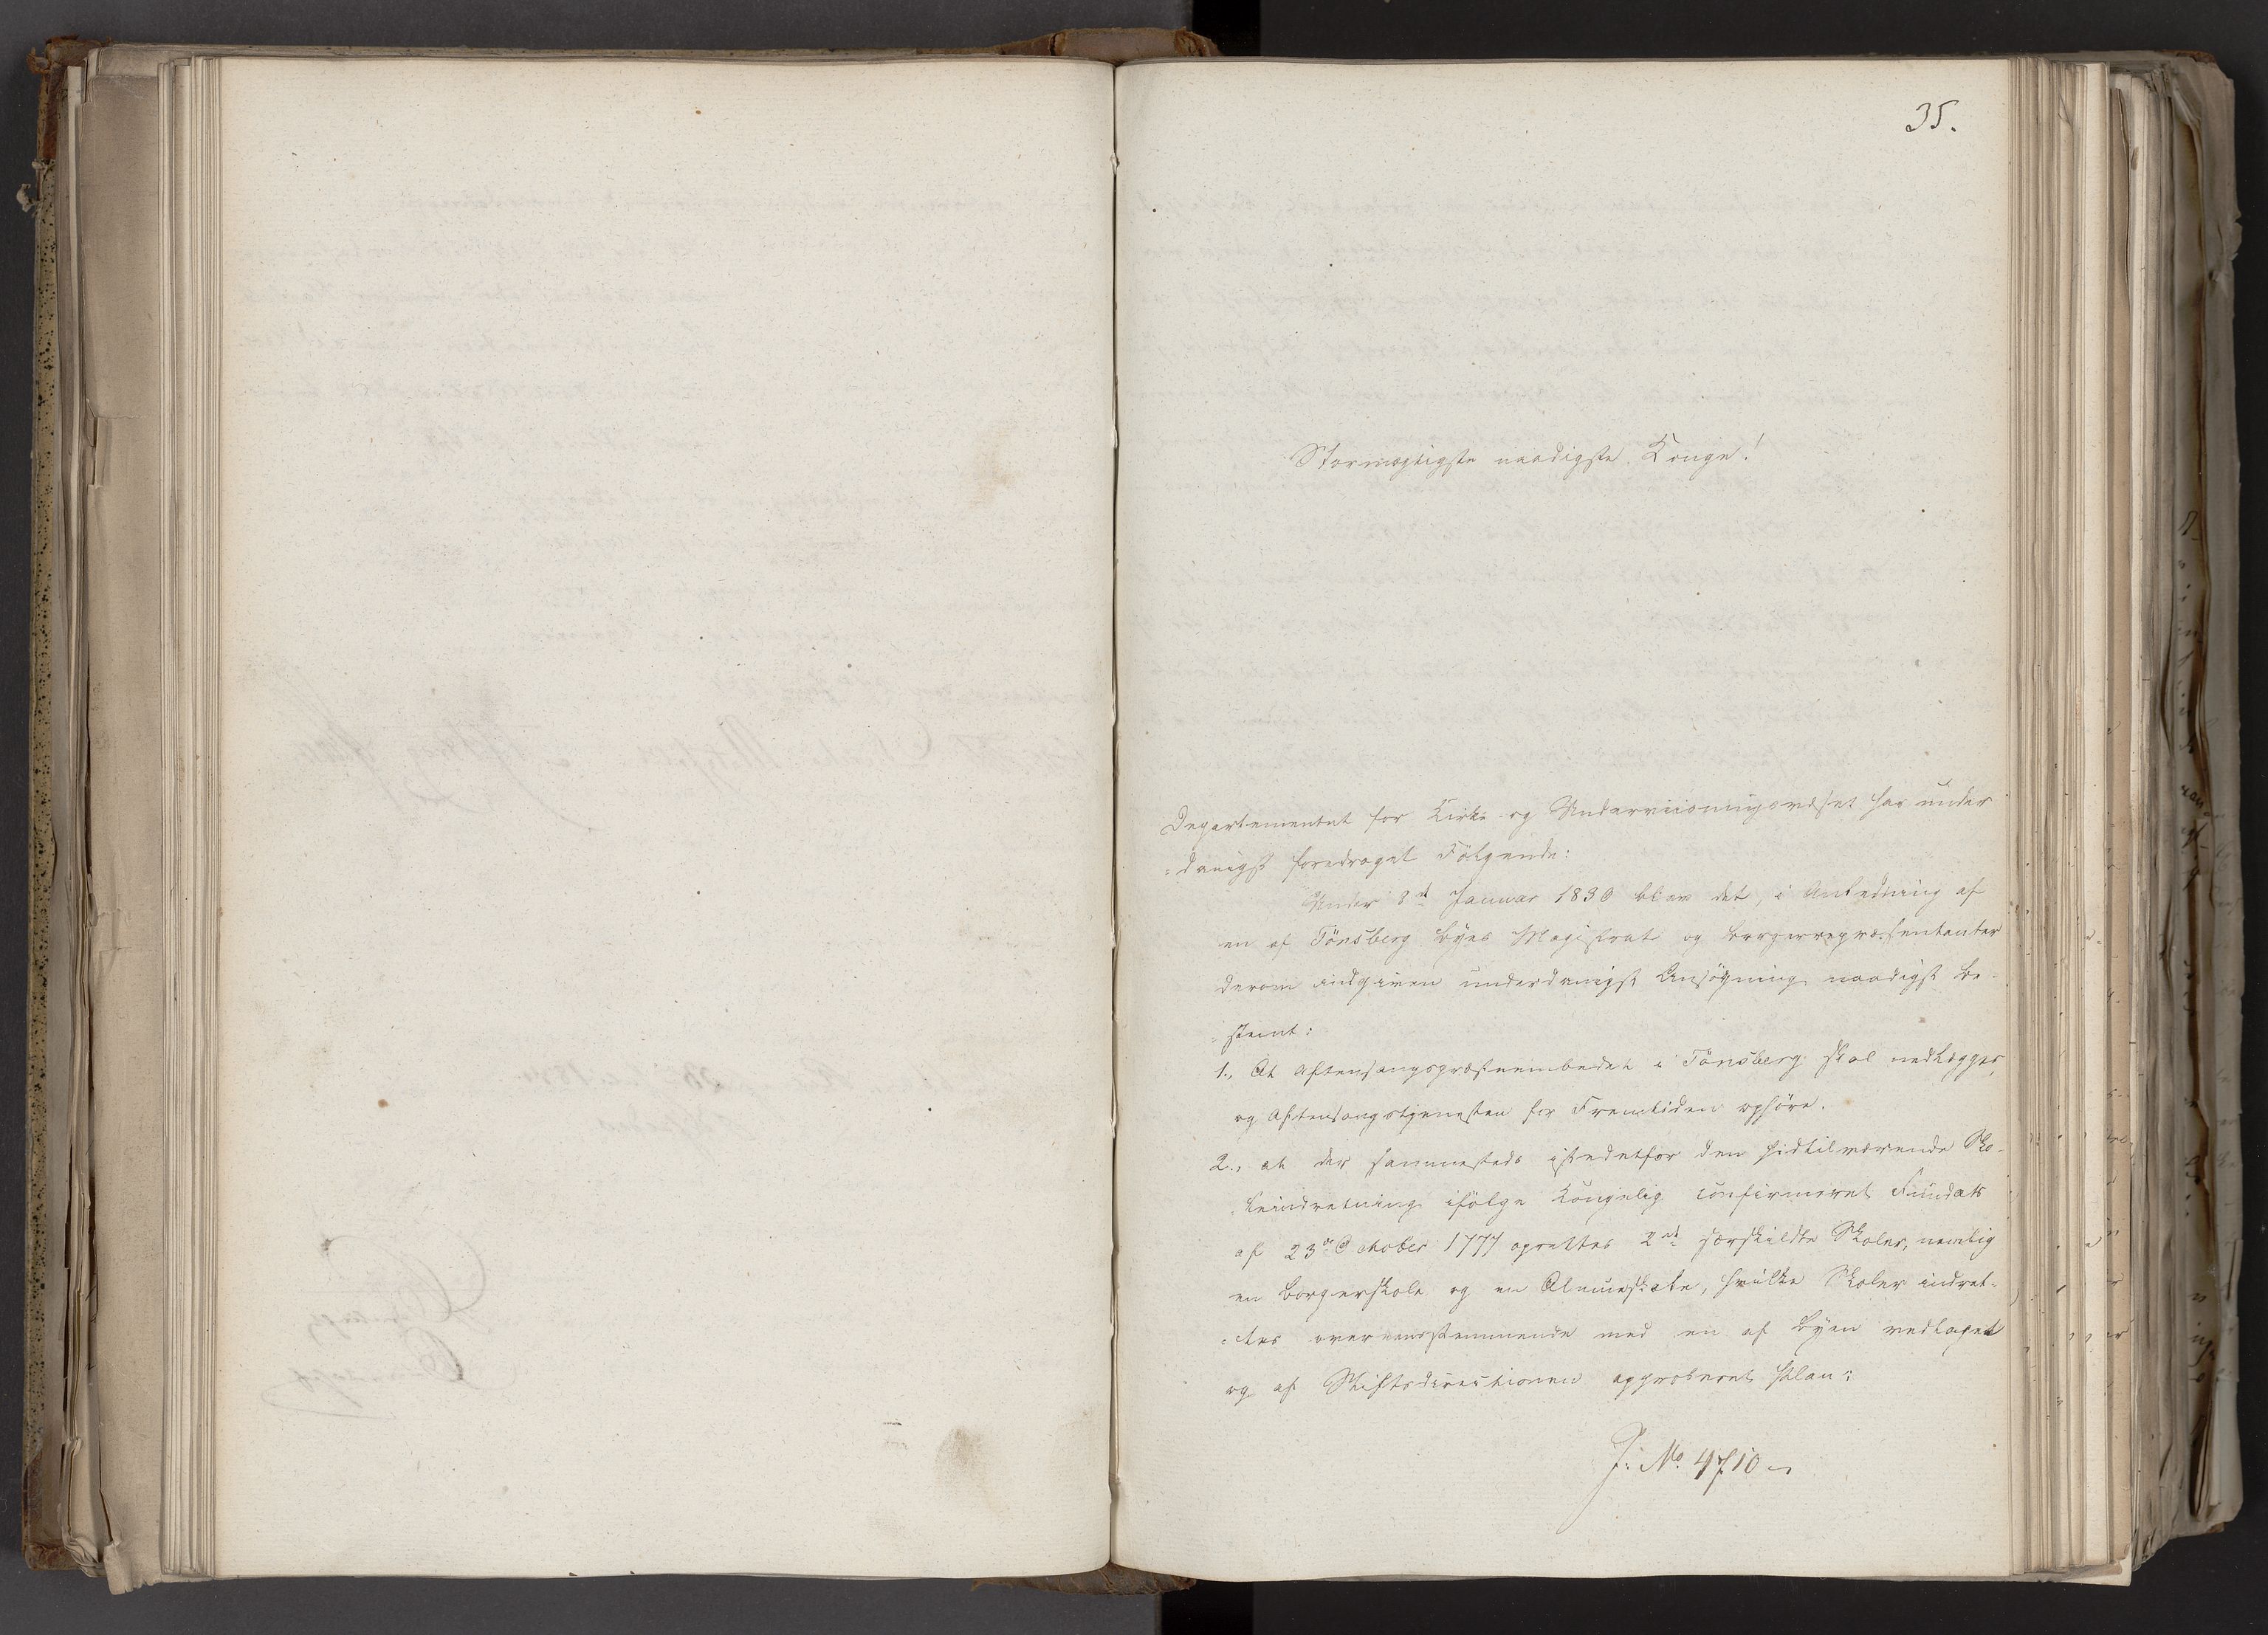 35.
Stormægtigste naadigste Konge!
Departementet for Kirke- og Underviisningsvæsnet har under
=danigst foredraget Følgende:
Under 8de Januar 1830 blev det, i Anledning af
en af Tönsberg Byes Magistrat og Borgerrepræsentanter
derom indgiven underdanigst Ansøgning naadigst be-
=stemt:
1., At Aftensangspræsteembedet i Tönsberg skal nedlægges,
og Aftensangstjenesten for Fremtiden ophöre.
2., at der sammesteds istedetfor den hidtilværende Sko-
=leindretning ifölge Kongelig confirmeret Fundats
af 23de October 1777 oprettes 2de særskildte Skoler, nemlig
en Borgerskole og en Almueskole, hvilke Skoler indret-
=tes overeensstemmende med en af Byen vedtaget
og af Stiftsdirectionen approberet Plan:
J: No. 4710